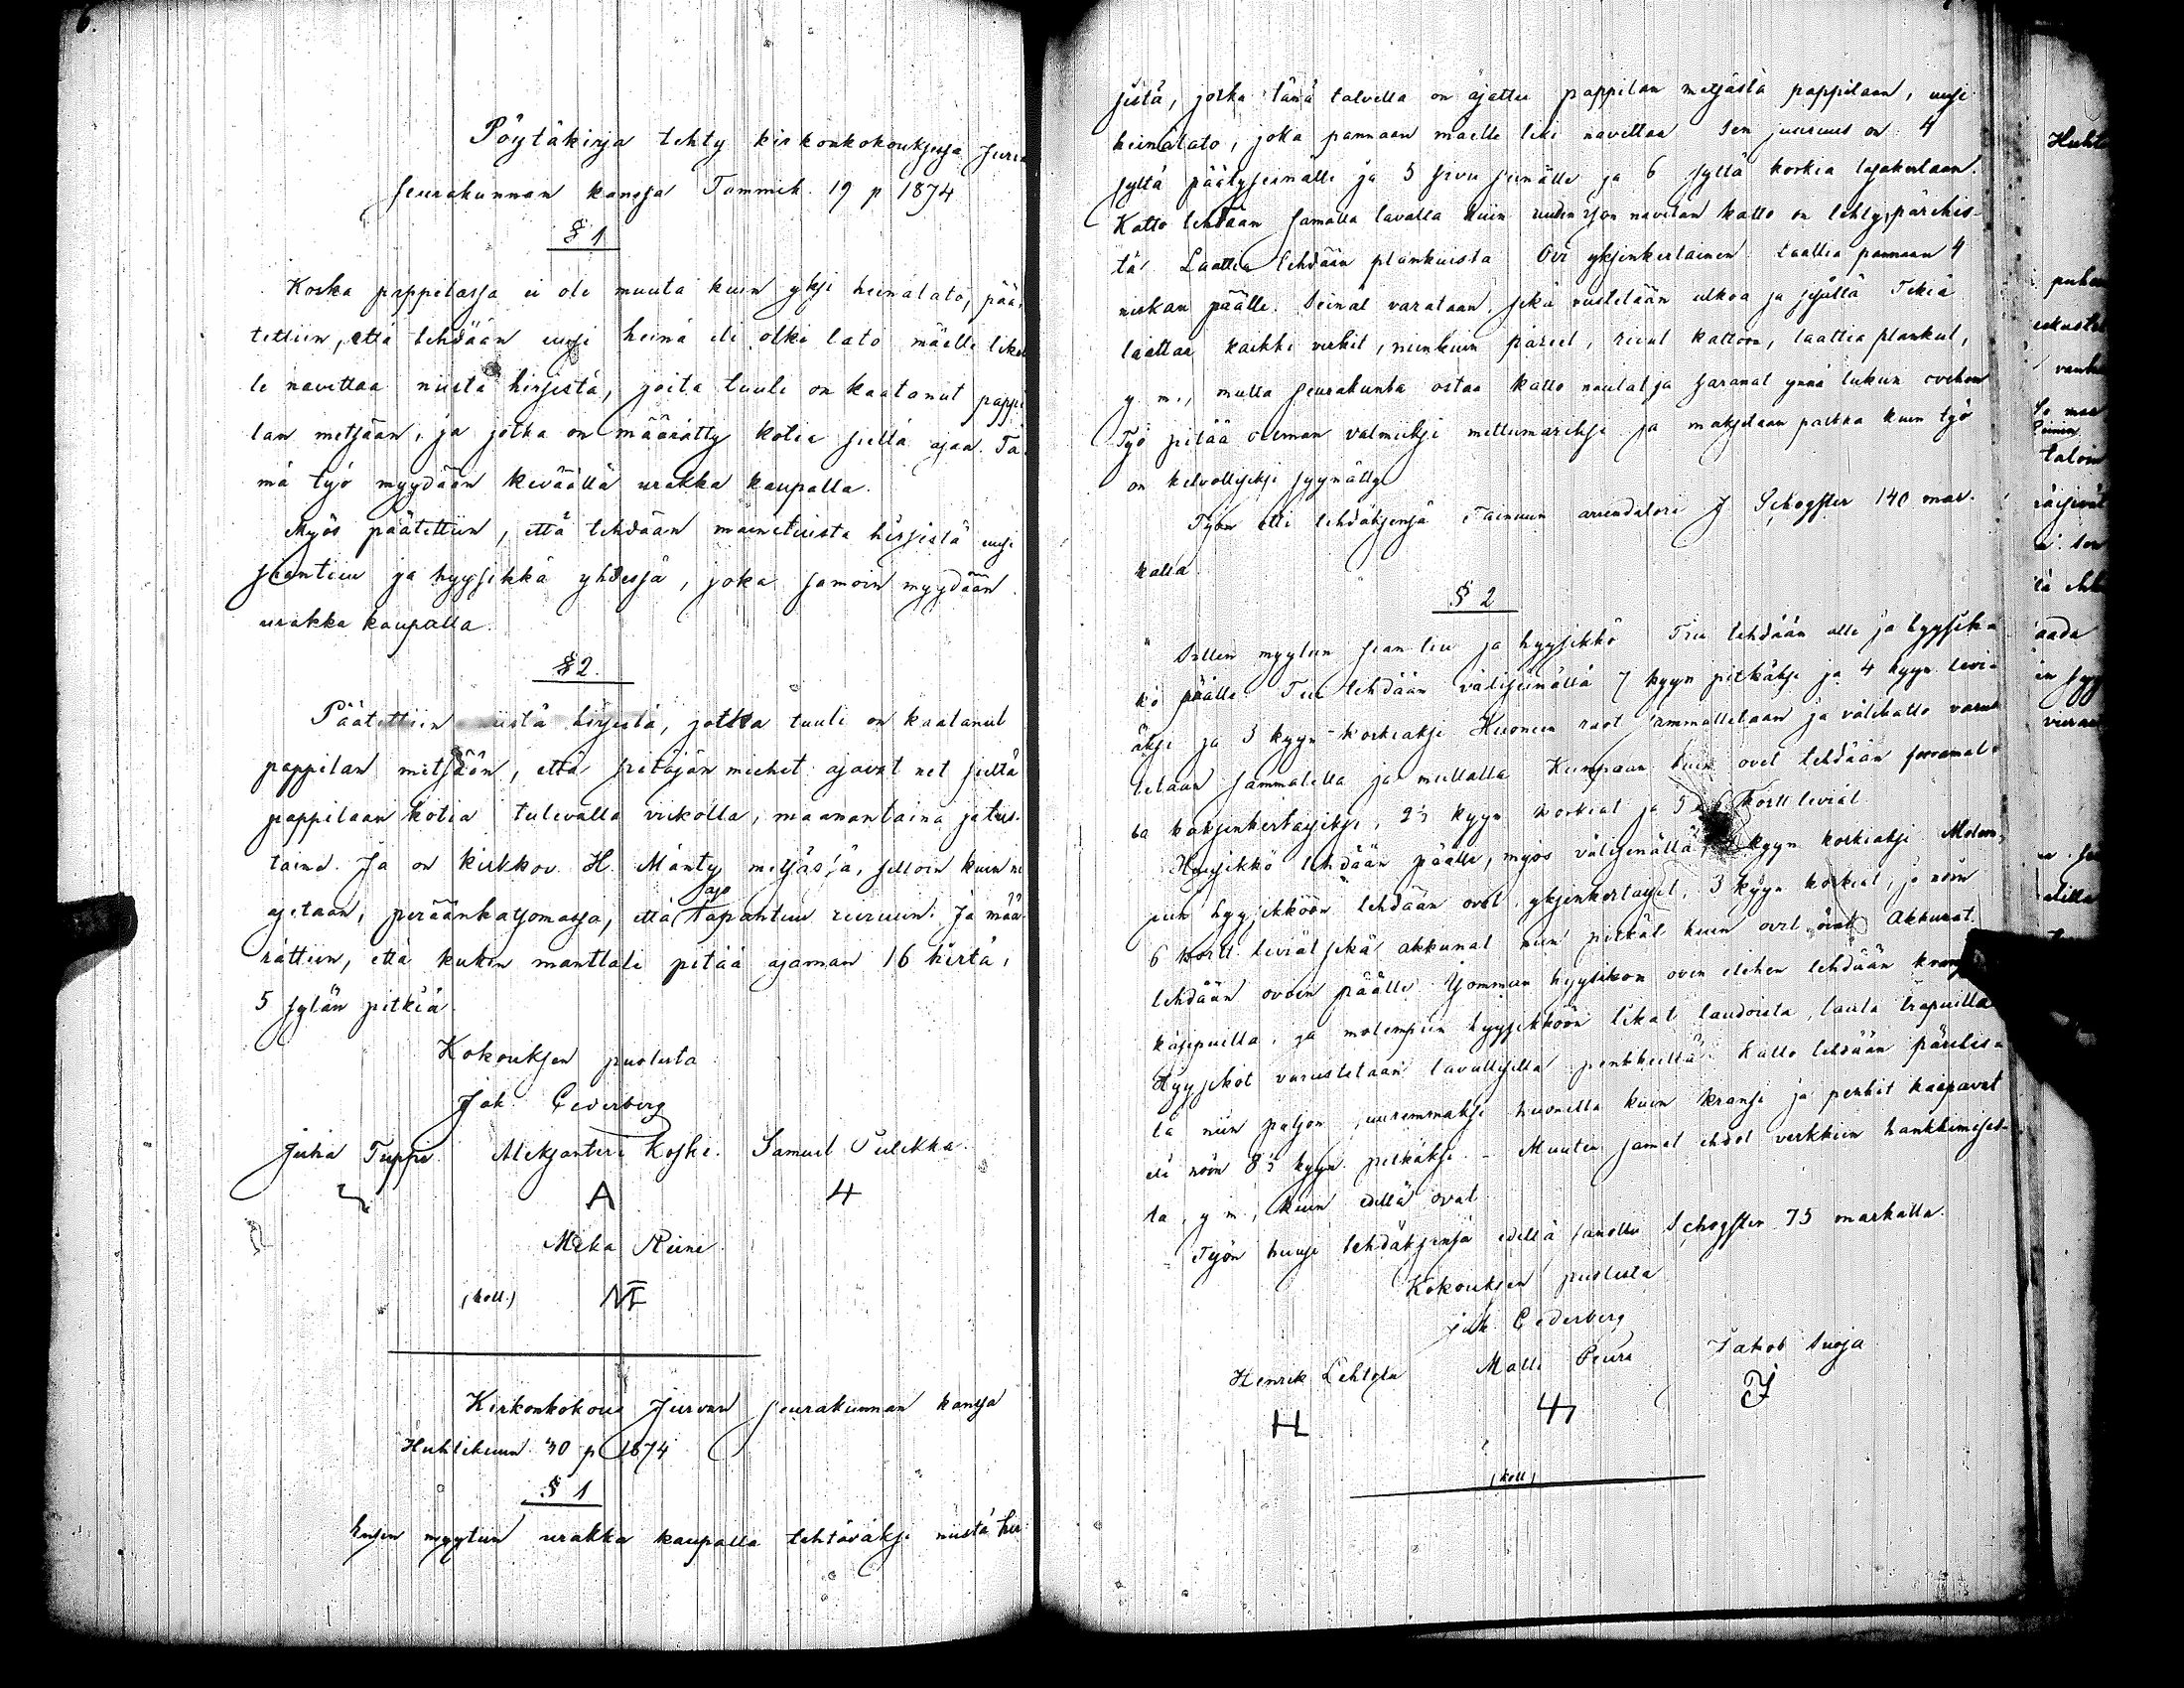 6.
Pöytäkirja tehty kirkonkokouksessa Jurva
seurakunnan kanssa Tammik. 19 p 1874
§ 1
Koska pappilassa ei ole muuta kuin yksi heinälato, pää-
tettiin, että tehdään uusi heinä eli olki lato mäelle likel
le navettaa niistä hirsistä, joita tuuli on kaatanut pappi
lan metsään, ja jotka on määrätty kotia sieltä ajaa. Tä
mä työ myydään keväällä urakka kaupalla.
Myös päätettiin, että tehdään mainituista hirsistä uusi
siantiu ja hyysikkä yhdessä, joka samoin myydään
urakka kaupalla.
§ 2.
Päätettiin niistä hirsistä, jotka tuuli on kaatanut
pappilan metsään, että pitäjän miehet ajavat net sieltä
pappilaan kotia tulevalla viikolla, maanantaina ja tiis-
taina. Ja on kirkkov. H. Mänty metsässä, silloin kuin ne
ajetaan, peräänkatsomassa, että ajo tapahtuu Ja mää
rättiin, että kukin manttali pitää ajaman 16 hirttä,
5 sylän pitkiä.
Kokouksen puolesta
Joh. Cederberg
Juha Tuppi Aleksanteri Koski. Samuel Pulikka.
A 4
Mika Riini
(koll.)
Kirkonkokous Jurvan seurakunnan kanssa
Huhtikuun 30 p 1874
§ 1
Ensin myytiin urakka kaupalla tehtäväksi niistä hir
sistä, jotka tänä talvella on ajettu pappilan metsästä pappilaan, uusi
heinälato, joka pannaan mäelle liki navettaa Sen juuruus on: 4
syltä päätyseinälle ja 5 sivu seinälle ja 6 syltä korkia
Katto tehdään samalla tavalla kuin navetan katto on tehty, pärehis-
tä. Laattia tehdään plankuista Ovi yksinkertainen Laattia pannaan 4
niskan päälle. Seinät varataan, sekä ulkoa ja sisältä Tekiä
laittaa kaikki verkit, niinkuin päreet, riivut kattoon, laattia plankut,
y. m., mutta seurakunta ostaa katto naulat ja saranat ynnä lukun ovehen
Työ pitää oleman valmiiksi mittumariksi ja maksetaan palkka kuin työ
on kelvolliseksi syynätty
Työn otti tehdäksensä arrendatori J Schogster 140 mar-
kalla.
§ 2
Sitten myytiin sian tiu ja hyysikkö Tiu tehdään alle ja hyysik-
kö päälle Tiu tehdään väliseinällä 7 kyyn pitkäksi ja 4 kyyn levi-
äksi ja 3 kyyn korkiaksi Huoneen raot sammalletaan ja välikatto varus
tetaan sammalella ja mullalla ovet tehdään
ta kaksinkertaisiksi, 2½ kyyn korkiat ja 5 kortt leviät
Hyysikkö tehdään päälle, myös väliseinällä, kyyn korkiaksi Molem-
piin hyysikköön tehdään ovet yksinkertaiset, 3 kyyn korkiat, ja noin
6 kortt. leviät sekä akkunat niin pitkät kuin ovet ovat Akkunat
tehdään ovein päälle hyysikön oven etehen tehdään
käsipuilla, ja molempiin hyysikköön likat laudoista, lauta trapuilla
Hyysiköt varustetaan tavallisilla penkkeillä Katto tehdään pärehis-
tä niin paljon suuremmaksi huonetta kuin kransi ja penkit kaipavat
eli noin 8½ kyyn. pitkäksi. - Muuten samat ehdot verkkiin hankkimises-
ta, y m, kuin edellä ovat
Työn huusi tehdäksensä edellä sanottu Schogster 75 markalla.
Kokouksen puolesta
Joh Cederberg
Henrik Lehtola Matti Peura Jakob Suoja
H 4 J
(koll)